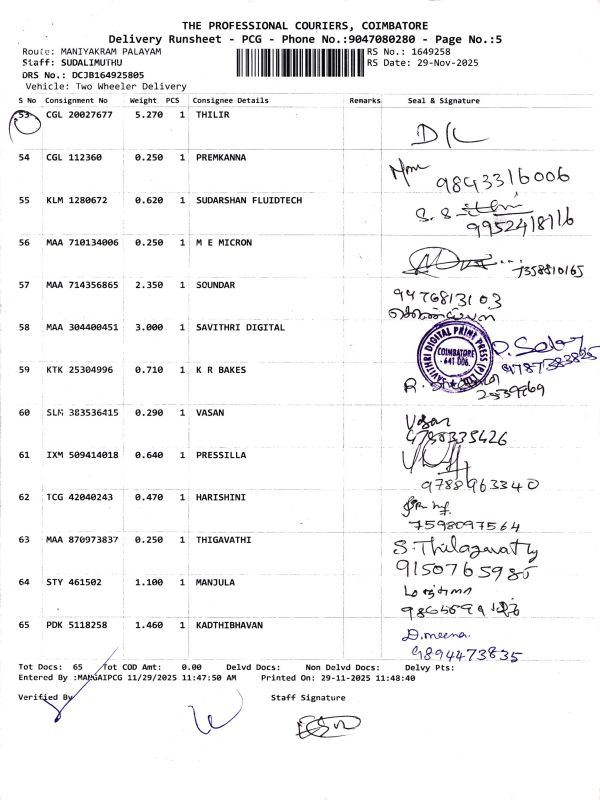 THE PROFESSIONAL COURIERS, COIMBATORE
Delivery Runsheet - PCG - Phone No.:9047080280 - Page No.:5
Route: MANIYAKRAM PALAYAM RS No.: 1649258
Staff: SUDALIMUTHU RS Date: 29-Nov-2025
DRS No.: DCJB164925805
Vehicle: Two Wheeler Delivery
S No Consignment No Weight PCS Consignee Details Remarks Seal & Signature
53 CGL 20027677 5.270 1 THILIR D/L
54 CGL 112360 0.250 1 PREMKANNA
9843316006
55 KLM 1280672 0.620 1 SUDARSHAN FLUIDTECH
9952418116
56 MAA 710134006 0.250 1 M E MICRON
7358810165
57 MAA 714356865 2.350 1 SOUNDAR 9476813103
58 MAA 304400451 3.000 1 SAVITHRI DIGITAL
SAVITHRI DIGITAL PRINT PRESS (P) LTD
COIMBATORE
- 641 006.
59 KTK 25304996 0.710 1 K R BAKES
60 SLM 383536415 0.290 1 VASAN Vasan
9788335426
61 IXM 509414018 0.640 1 PRESSILLA
9788963340
62 TCG 42040243 0.470 1 HARISHINI
7598097564
63 MAA 870973837 0.250 1 THIGAVATHI S. Thilagavathy
9150765985
64 STY 461502 1.100 1 MANJULA
65 PDK 5118258 1.460 1 KADTHIBHAVAN D.meena
9894473835
Tot Docs: 65 Tot COD Amt: 0.00 Delvd Docs: Non Delvd Docs: Delvy Pts:
Entered By :MANGAIPCG 11/29/2025 11:47:50 AM Printed On: 29-11-2025 11:48:40
Verified By Staff Signature